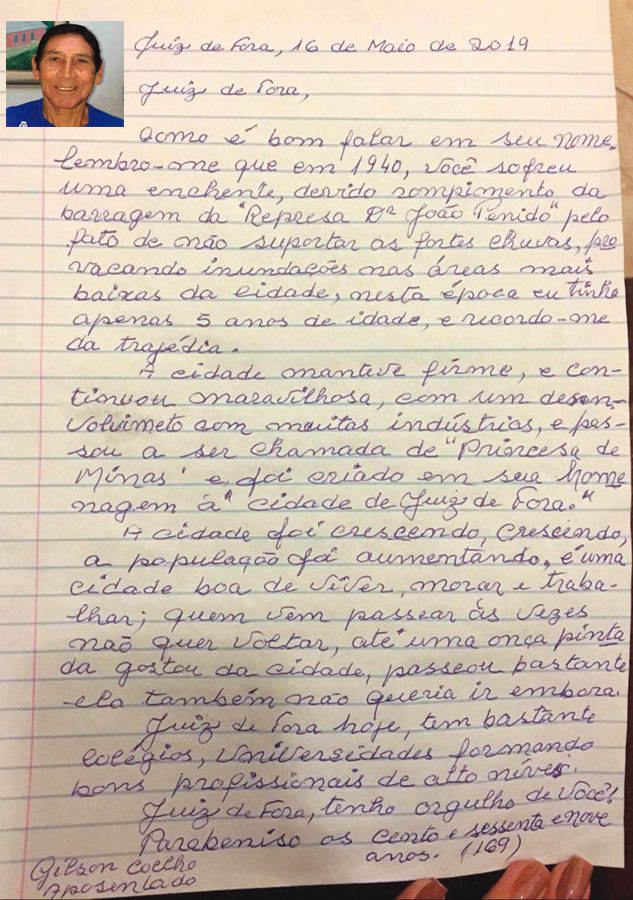 Juiz de Fora, 16 de Maio de 2019
Juiz de Fora,
Como é bom falar em seu nome.
lembro-me que em 1940, você sofreu
uma enchente, devido rompimento da
barragem da "Represa Dr João Penido" pelo
fato de não suportar as fortes chuvas, pro
vocando inundações nas áreas mais
baixas da cidade, nesta época eu tinha
apenas 5 anos de idade, e recordo-me
da tragédia.
A cidade manteve firme, e con-
tinuou maravilhosa, com um desen-
volvimeto com muitas indústrias, e pas-
sou a ser chamada de "Princesa de
Minas" e foi criado em sua home
nagem a "cidade de Juiz de Fora."
A cidade foi crescendo, crescendo,
a população foi aumentando, é uma
cidade boa de viver, morar e traba-
lhar; quem vem passear às vezes
não quer voltar, até uma onça pinta
da gostou da cidade, passeou bastante
ela também não queria ir embora.
Juiz de Fora hoje, tem bastante
colégios, Universidades formando
bons profissionais de alto níves.
Juiz de Fora, tenho orgulho de você!
Parabeniso os cento e sessenta e nove
anos. (169)
Gilson Coelho
Aposentado